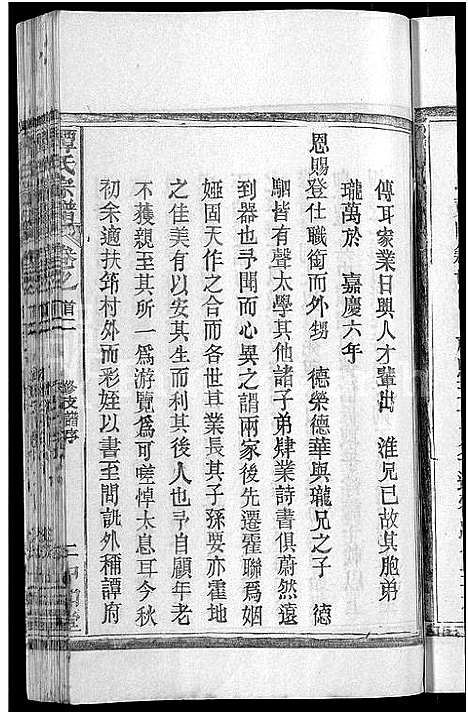 傳耳家業日興人才輩出 淮兄已故其胞弟
瓏萬於 嘉慶六年
恩賜登仕職銜而外甥 德榮德華與瓏兄之子 德
駰皆有聲太學其他諸子弟肄業詩書俱蔚然遠
到器也予聞而心異之謂兩家後先遷霍聯為姻
婭固天作之合而其業長其子孫要亦霍地
之佳美有以安其生而利其後人也予自顧年老
不獲親至其所一為游覽為可嗟悼太息耳今秋
初余適扶筇村外而彩姪以書至間訊外稱譚府
譚氏宗譜 卷之首一
修支譜序
二